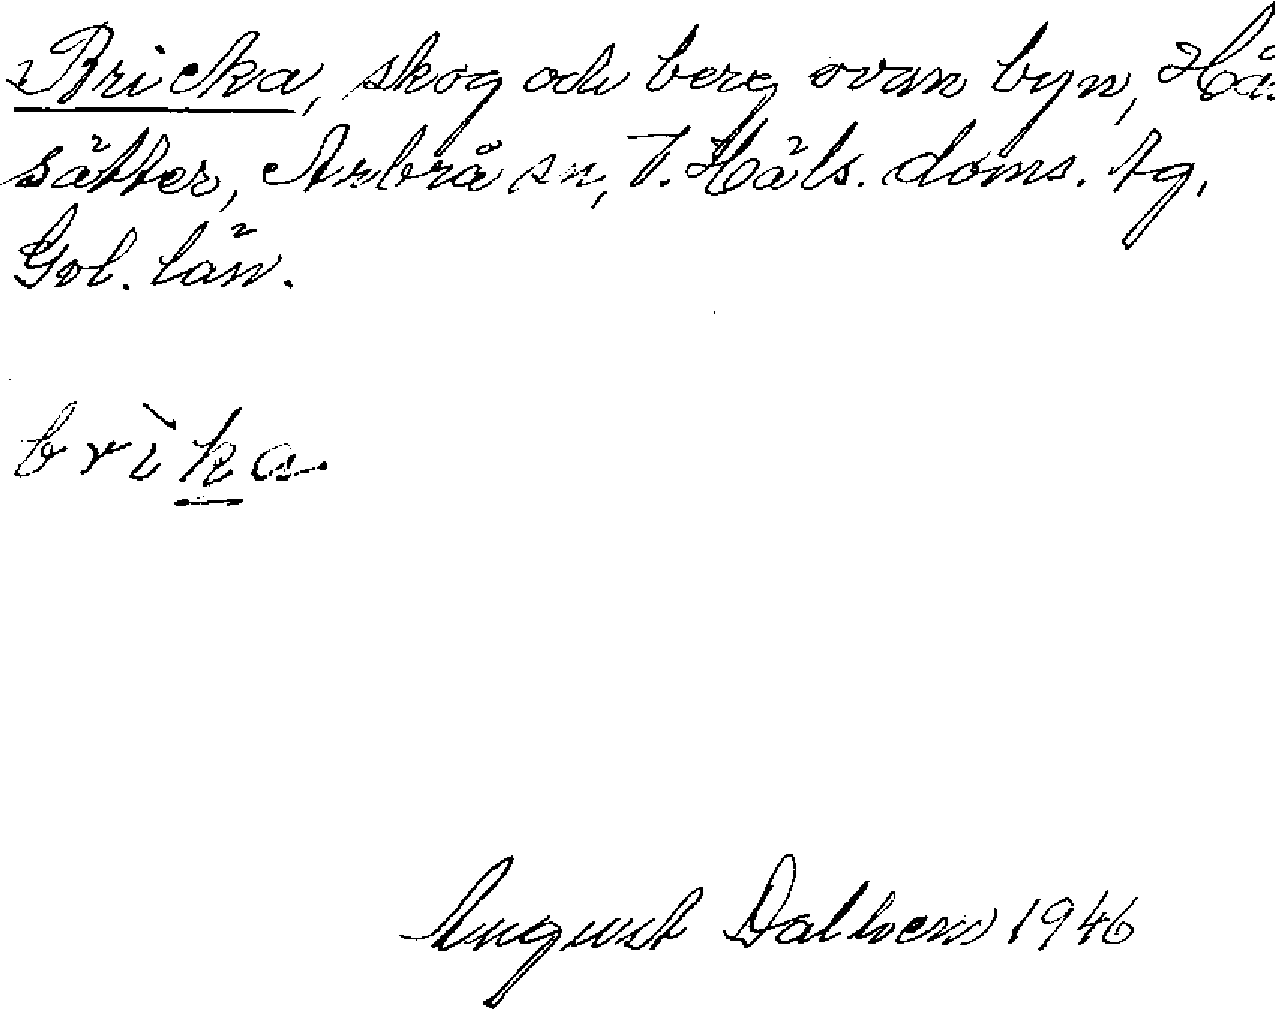 Bricka, skog och berg ovan byn, Hå
sätter, Arbrå sn, V. Häls. doms. tg,
Gvl. län.
brìka
August Dalhem 1946